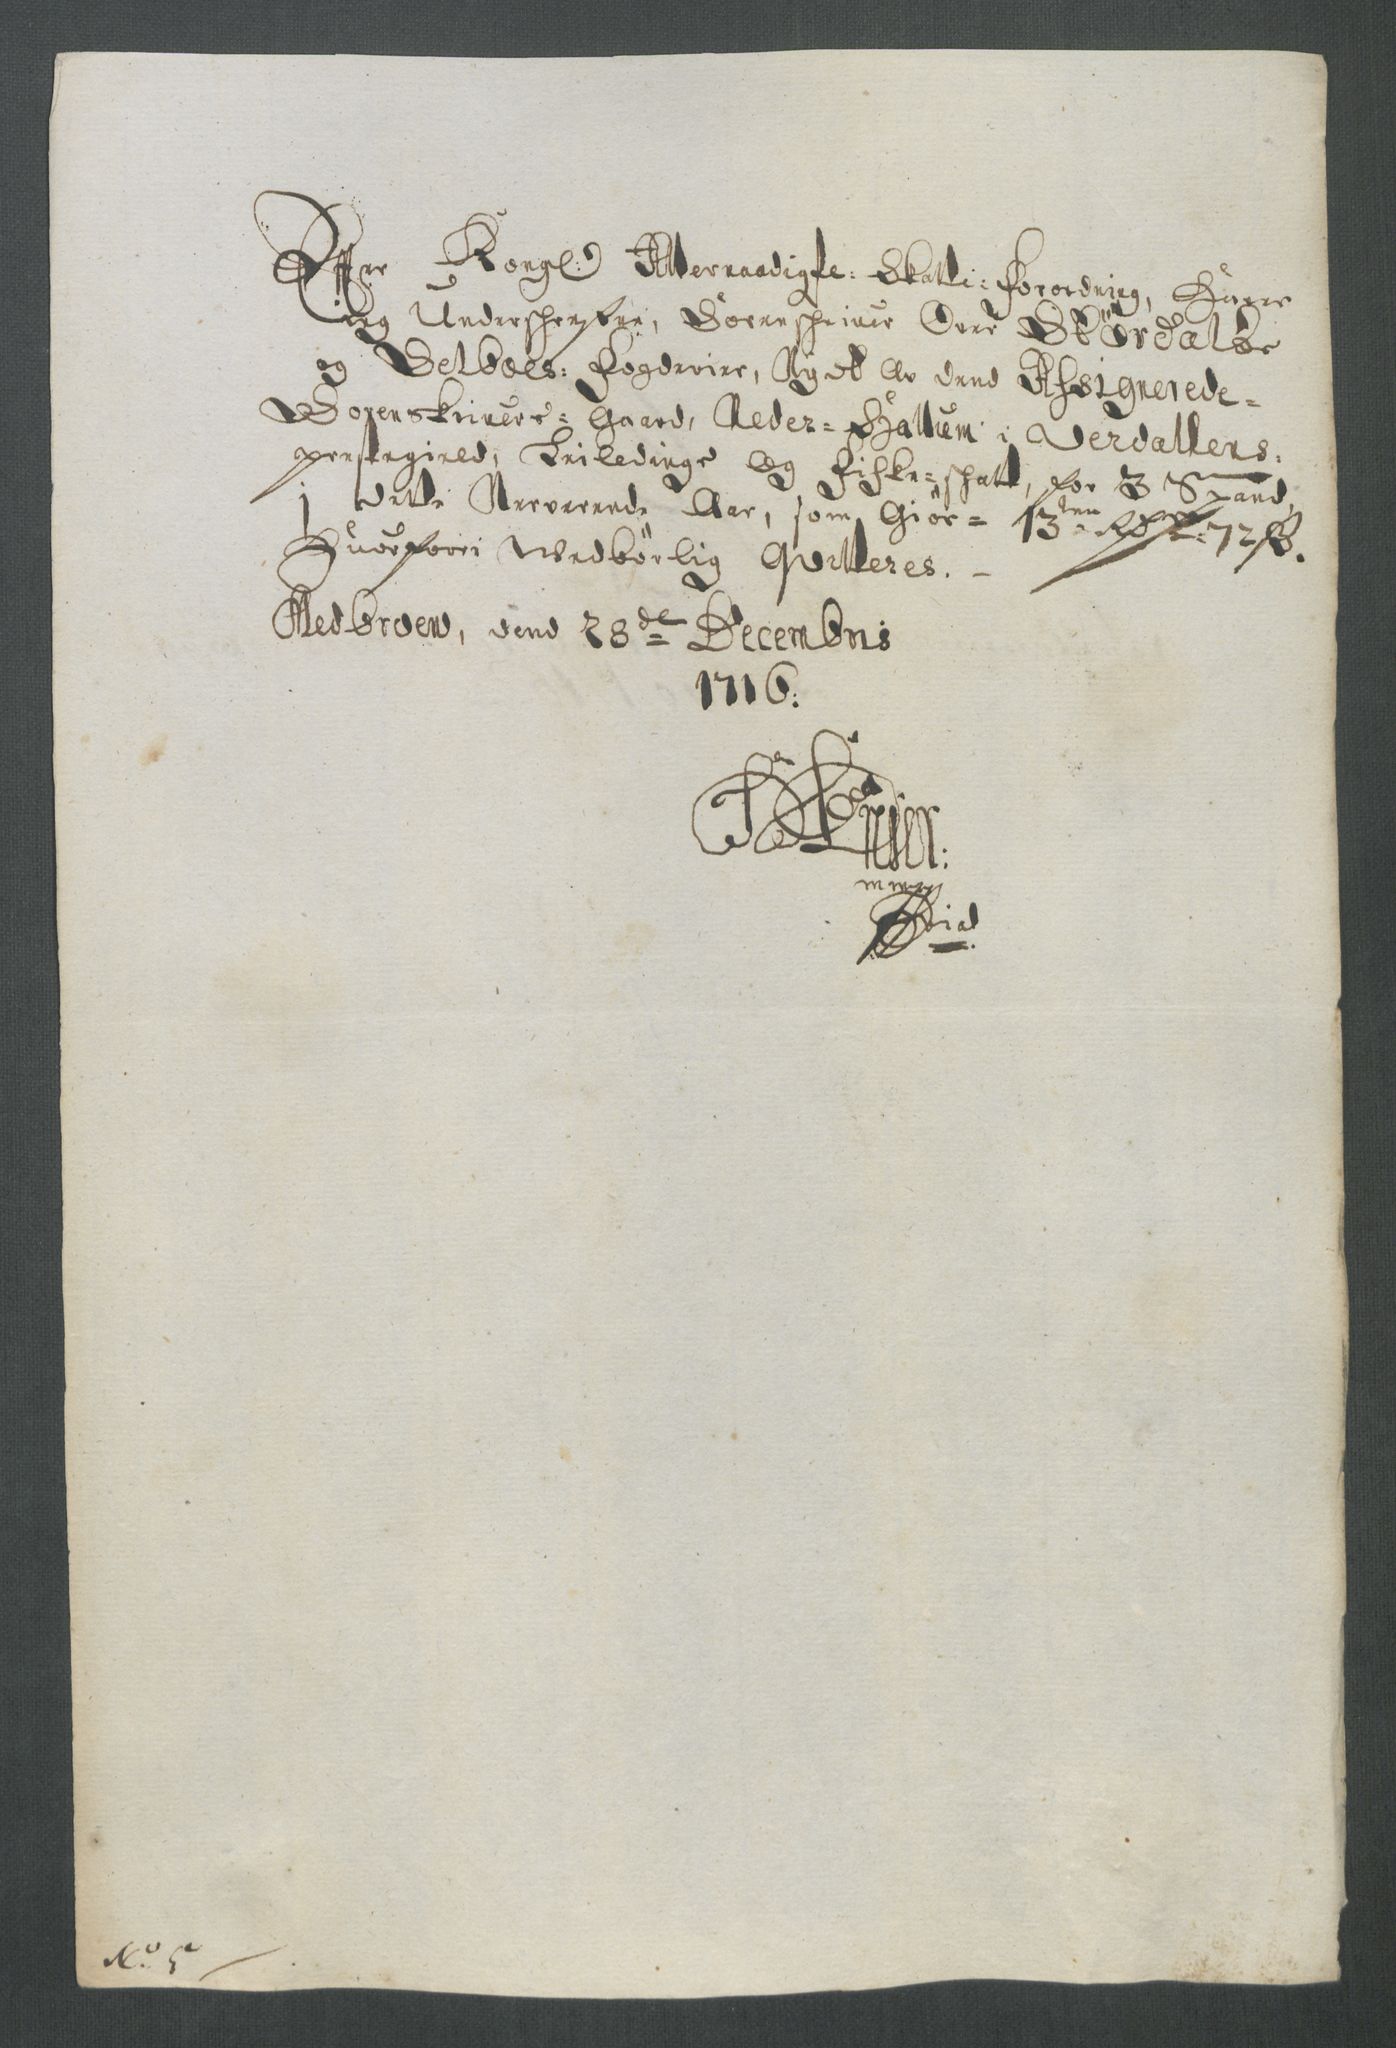 Effter Kongl: Allernaadigste: Skatte: Forordning, Hafuer
ieg Underschrefne, Sorenschriuer Ofuer Stördalss
og Selboes: Fogderier, Nydt Af dend Assignerede=
Sorenskriuers= Gaard, Neder= Hallum i Verdallens:
prestegield, Leiledings Og Fiske=schatt, for 3 Spand,
i dette Nerverende Aar, som Giör= 13ten Rdr: 72 s.
Huorforri Wedbörlig Qvitteres. –
dend 28de Decembris
1716:
mppria
No. 5